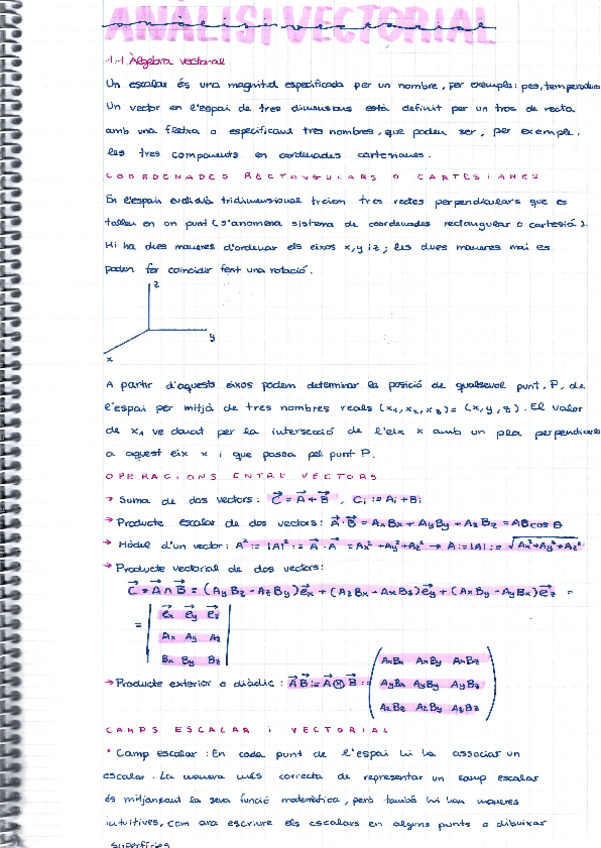 ANÀLISI VECTORIAL
1.1 Àlgebra vectorial
Un escalar és una magnitud especificada per un nombre, per exemple: pes, temperatura
Un vector en l'espai de tres dimensions està definit per un tros de recta
amb una fletxa o especificant tres nombres, que poden ser, per exemple,
les tres components en coordenades cartesianes.
COORDENADES RECTANGULARS O CARTESIANES
En l'espai euclidià tridimensional tracen tres rectes perpendiculars que es
tallen en un punt (s'anomena sistema de coordenades rectangular o cartesià).
Hi ha dues maneres d'ordenar els eixos x, y i z; les dues maneres mai es
poden fer coincidir fent una rotació.
z
y
x
A partir d'aquests eixos podem determinar la posició de qualsevol punt, P, de
l'espai per mitjà de tres nombres reals (x₁, x₂, x₃) = (x, y, z). El valor
de x₁ ve donat per la intersecció de l'eix x amb un pla perpendicular
a aquest eix x i que passa pel punt P.
OPERACIONS ENTRE VECTORS
→ Suma de dos vectors: C⃗ = A⃗ + B⃗, Cᵢ := Aᵢ + Bᵢ
→ Producte escalar de dos vectors: A⃗·B⃗ = AxBx + AyBy + AzBz = AB cos θ
→ Mòdul d'un vector: A² := |A|² := A⃗·A⃗ = Ax² + Ay² + Az² → A := |A| := √Ax²+Ay²+Az²
→ Producte vectorial de dos vectors:
C⃗ = A⃗ ∧ B⃗ = (AyBz - AzBy)e⃗x + (AzBx - AxBz)e⃗y + (AxBy - AyBx)e⃗z =
= | e⃗x e⃗y e⃗z |
Ax Ay Az
Bx By Bz
→ Producte exterior o diàdic: A⃗B⃗ := A⃗ ⊗ B⃗ :=
AxBx AxBy AxBz
AyBx AyBy AyBz
AzBx AzBy AzBz
CAMPS ESCALAR i VECTORIAL
• Camp escalar: En cada punt de l'espai hi ha associat un
escalar. La manera més correcta de representar un camp escalar
és mitjançant la seva funció matemàtica, però també hi han maneres
intuitives, com ara escriure els escalars en alguns punts o dibuixar
superfícies